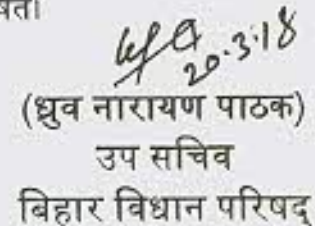 षत।
20.3.18
(ध्रुव नारायण पाठक)
उप सचिव
बिहार विधान परिषद्